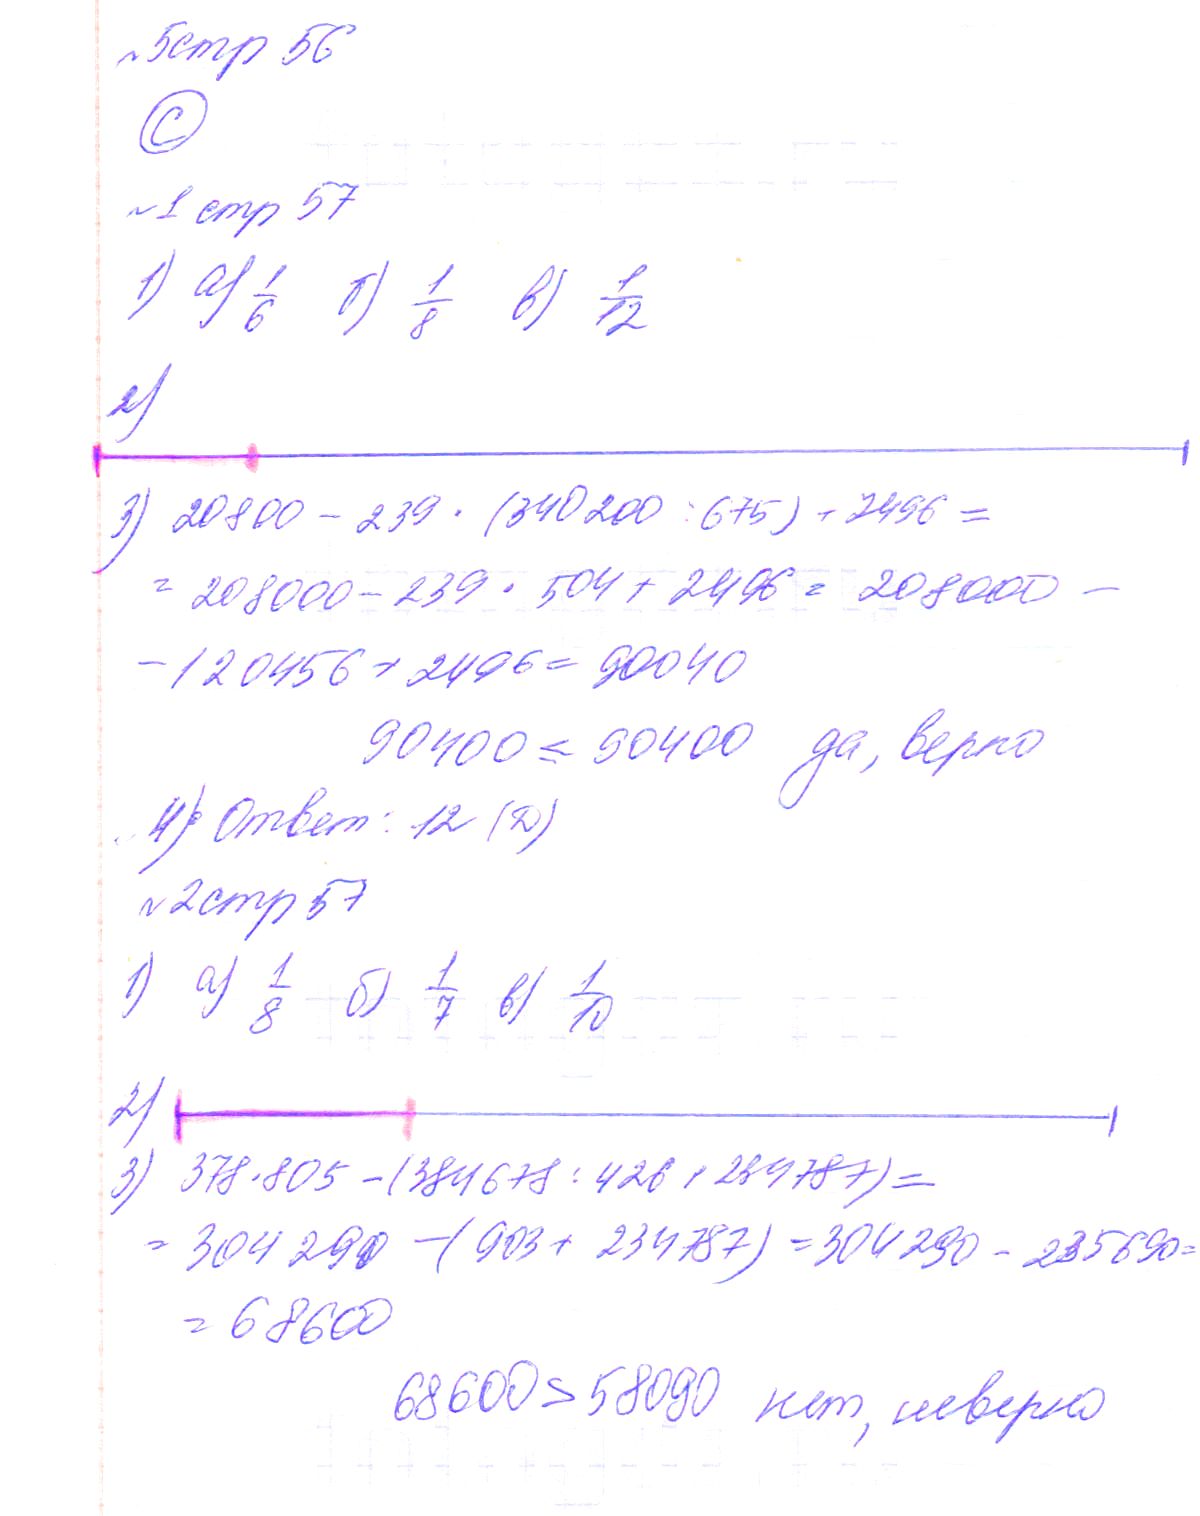 №5стр 56
С
№1 стр 57
1) а) 1/6 б) 1/8 в) 1/12
2)
3) 20800 - 239 · (340200 : 675) + 2496 =
= 208000 - 239 · 504 + 2496 = 208000 -
- 120456 + 2496 = 90040
90400 ≤ 90400 да, верно
4) Ответ: 12 (D)
№2стр 57
1) а) 1/8 б) 1/7 в) 1/10
2)
3) 378·805 - (384678 : 426 + 234787) =
= 304290 - (903 + 234787) = 304290 - 235690 =
= 68600
68600 > 58090 нет, неверно